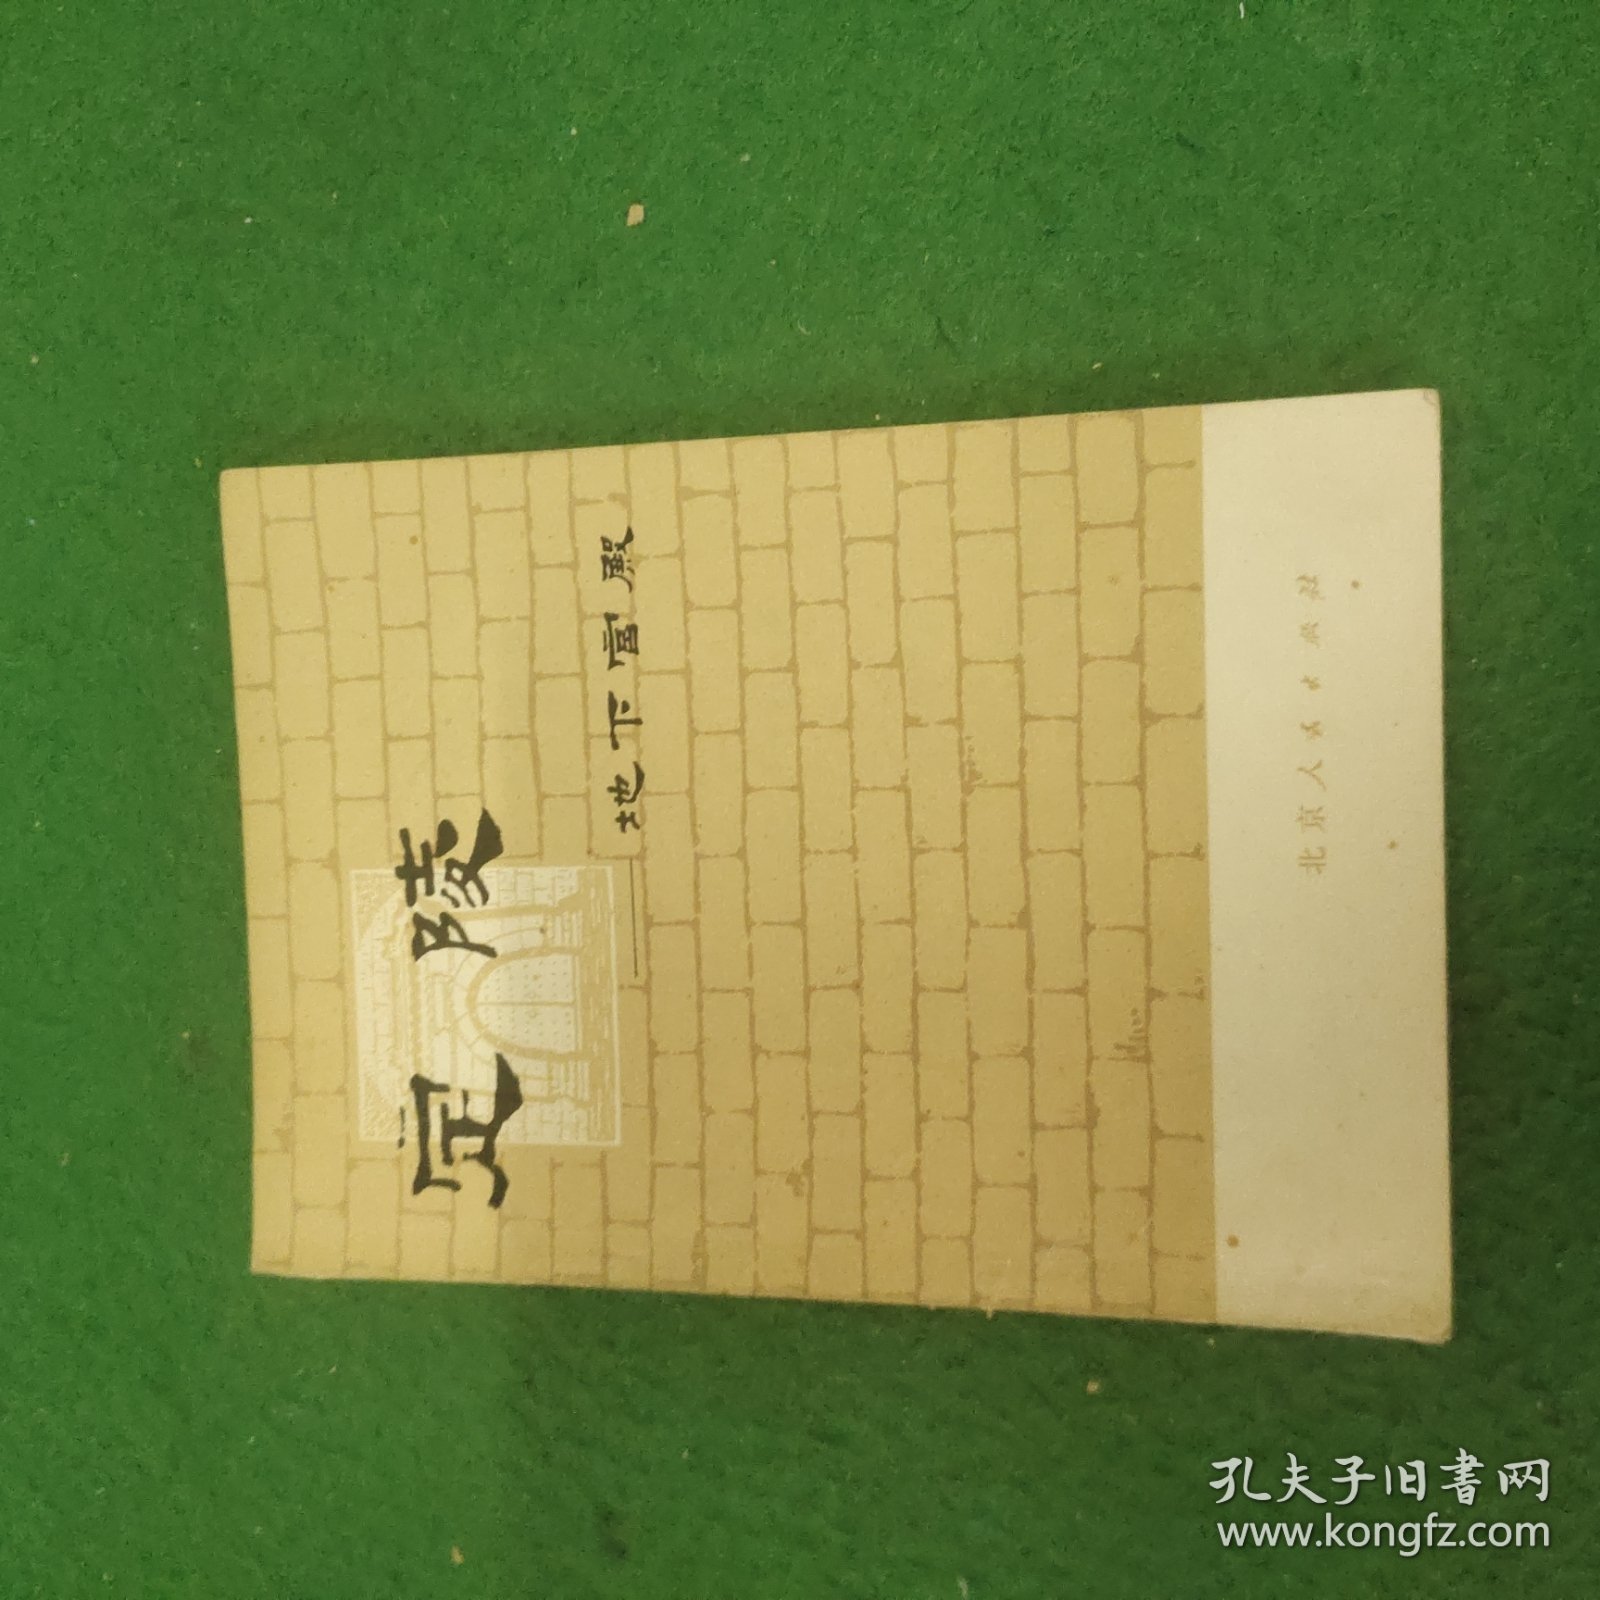 定陵
——地下宫殿
北京人民出版社
孔夫子旧書网
www.kongfz.com